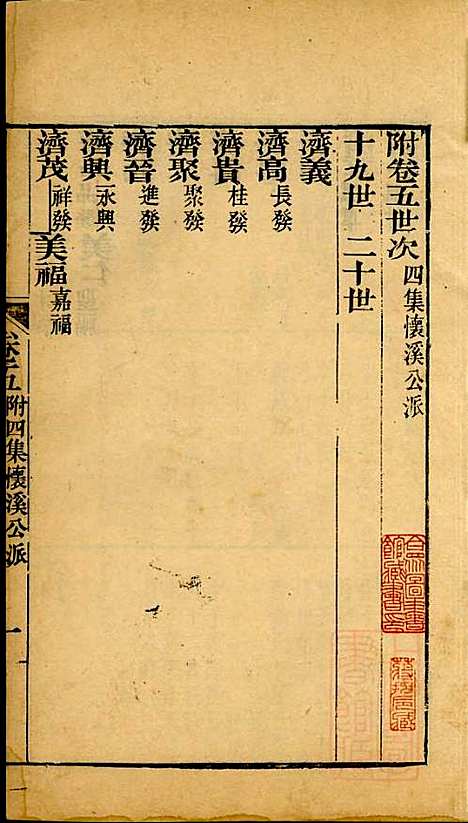 附卷五世次 四集懷溪公派
十九世 二十世
濟義
濟高 長發
濟貴 桂發
濟聚 聚發
濟晉 進發
濟興 永興
濟茂 祥發 美福 嘉福
卷五 附四集懷溪公派 一